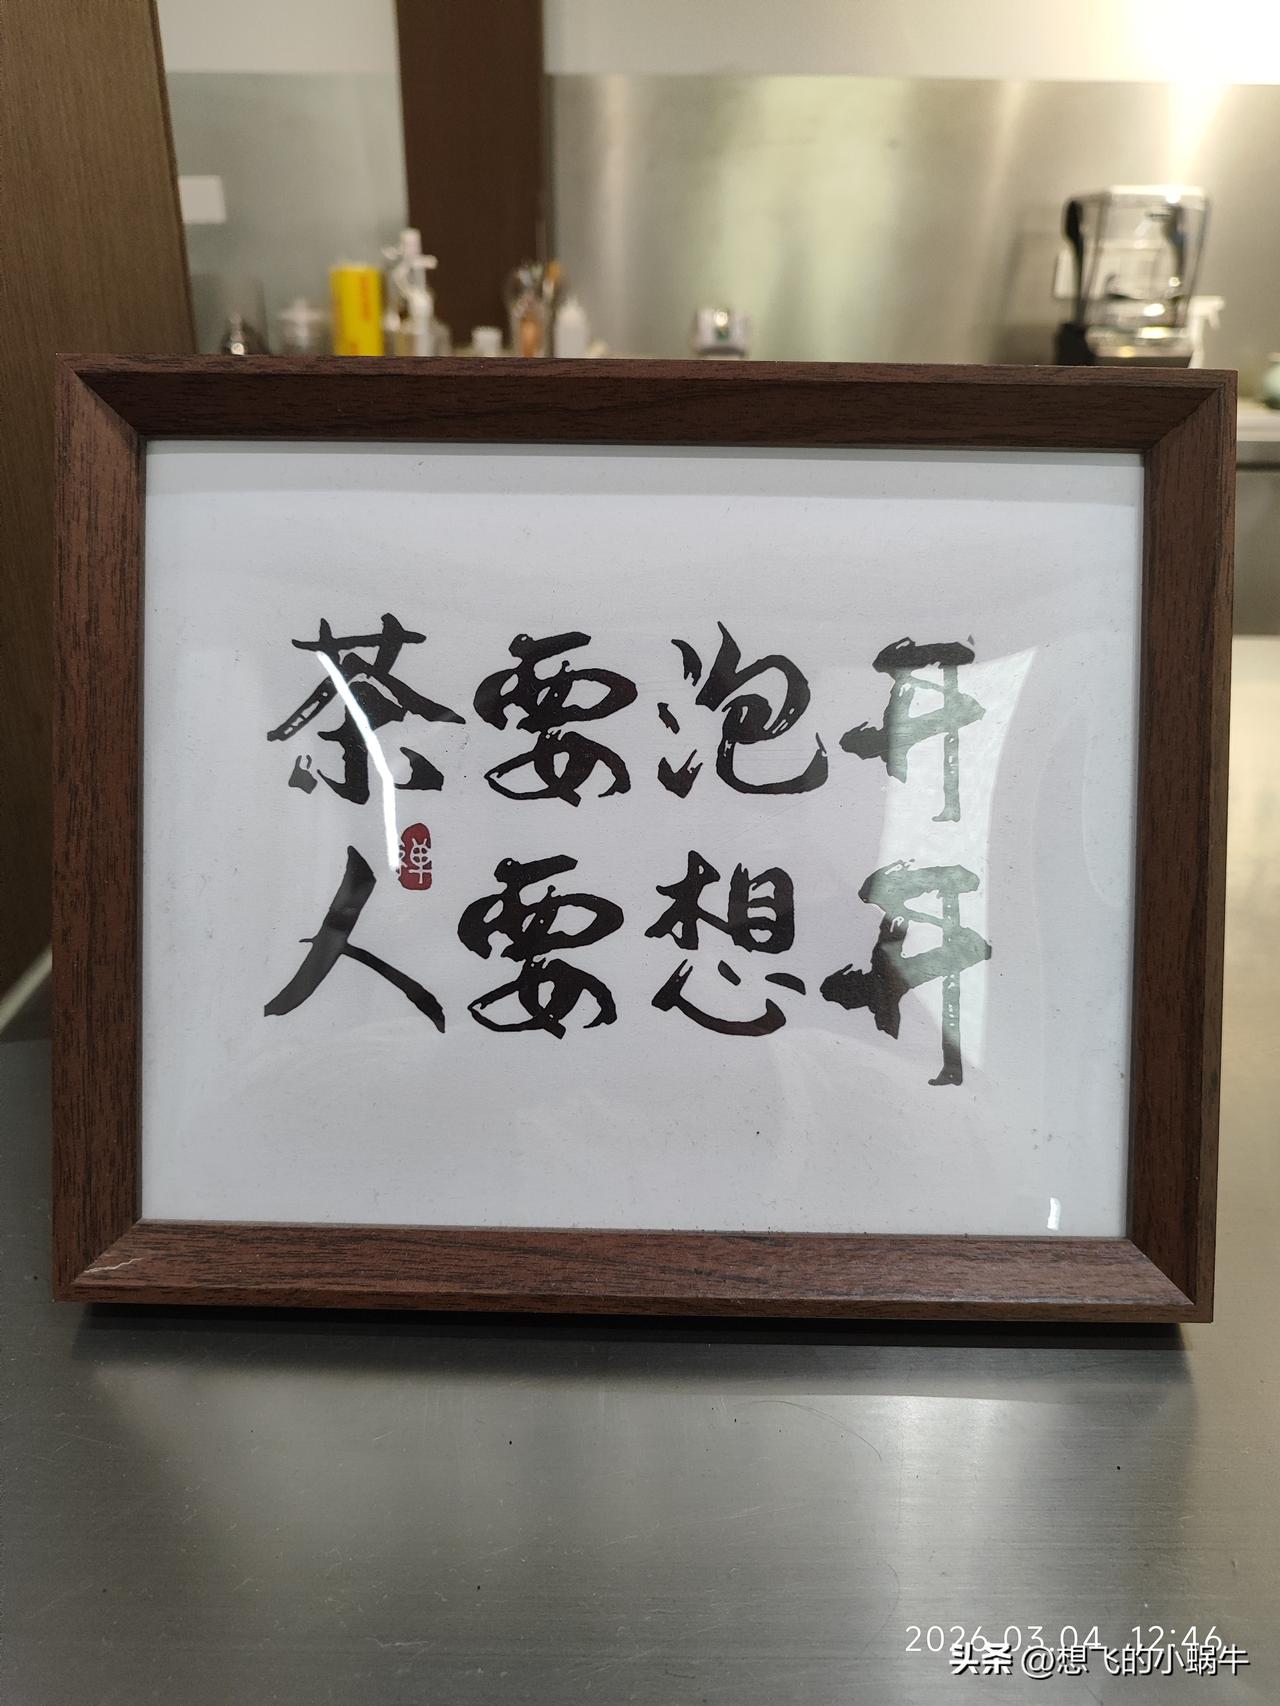 茶要泡开
禅
人要想开
2026.03.04 12:46
头条 @想飞的小蜗牛